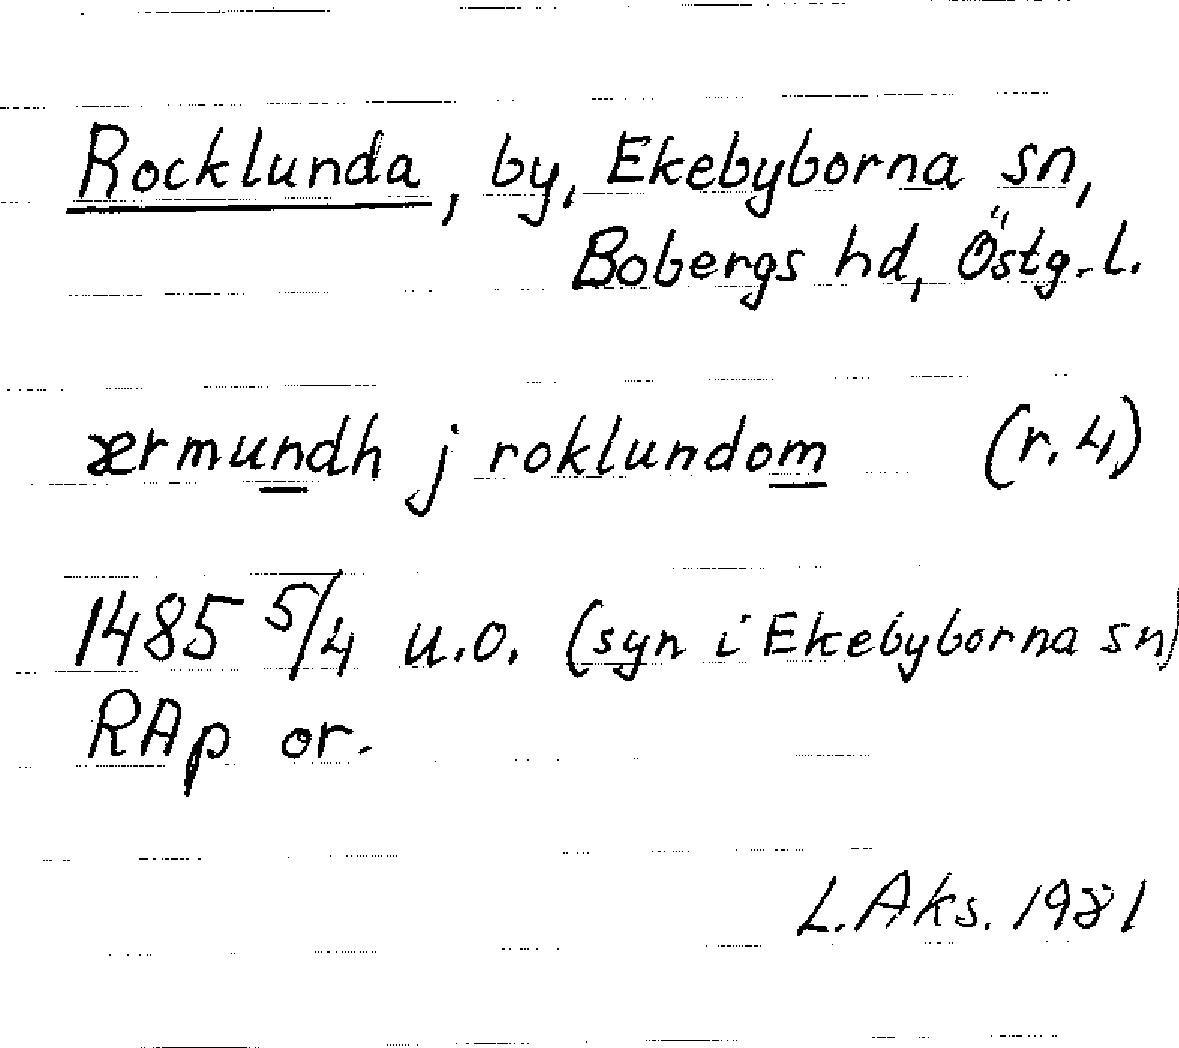 Rocklunda, by, Ekebyborna sn,
Bobergs hd, Östg.l.
ærmundh j roklundom (r. 4)
1485 5/4 u.o. (syn i Ekebyborna sn)
RAp or.
L.Aks. 1981